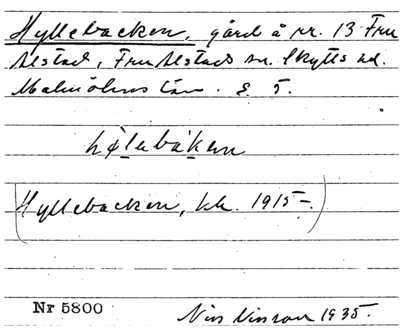 Hyllebacken, gård å nr. 13 Fru
Alstad, Fru Alstads sn. Skytts hd.
Malmöhus län. E. 5.
hø̣lebaken
(Hyllebacken, kk. 1915–.)
Nr 5800
Nils Nilsson 1935.